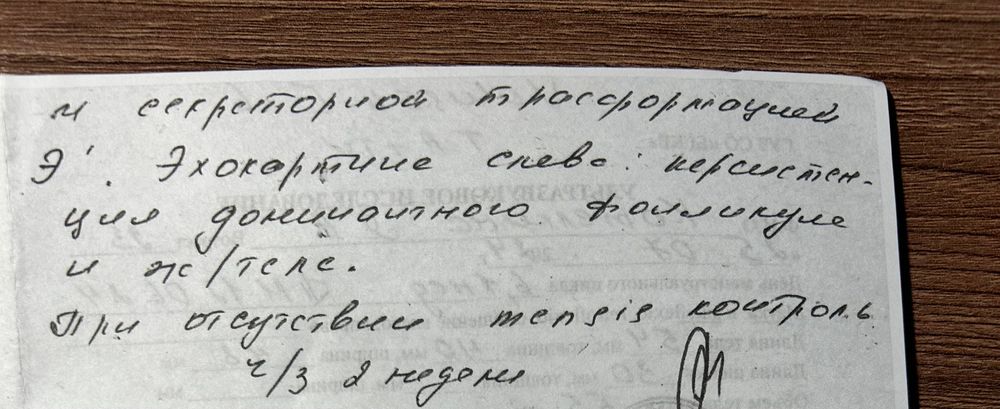 и секреторной трансформацией
Э'. Эхокартина слева: персистен-
ция доминантного фолликула
и ж/тела.
При отсутствии mensis контроль
ч/з 2 недели